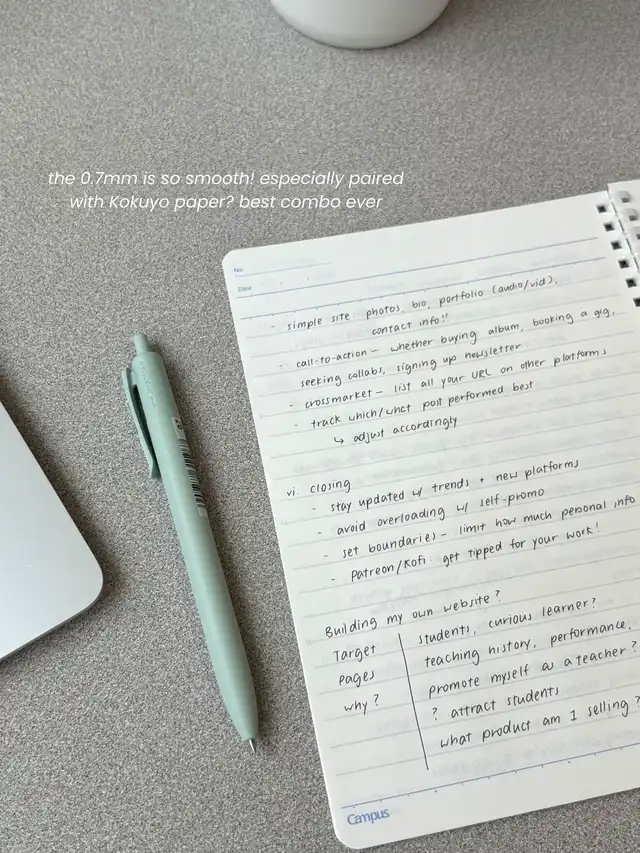 the 0.7mm is so smooth! especially paired
with Kokuyo paper? best combo ever
No.
Date
- simple site: photos, bio, portfolio (audio/vid),
contact info!!
- call-to-action – whether buying album, booking a gig,
seeking collabs, signing up newsletter
- crossmarket – list all your URL on other platforms
- track which/what post performed best
↳ adjust accordingly
vi. closing
- stay updated w/ trends + new platforms
- avoid overloading w/ self-promo
- set boundaries – limit how much personal info
- Patreon/Kofi: get tipped for your work!
Building my own website?
Target students, curious learner?
pages teaching history, performance,
why? promote myself as a teacher?
? attract students
what product am I selling?
Campus